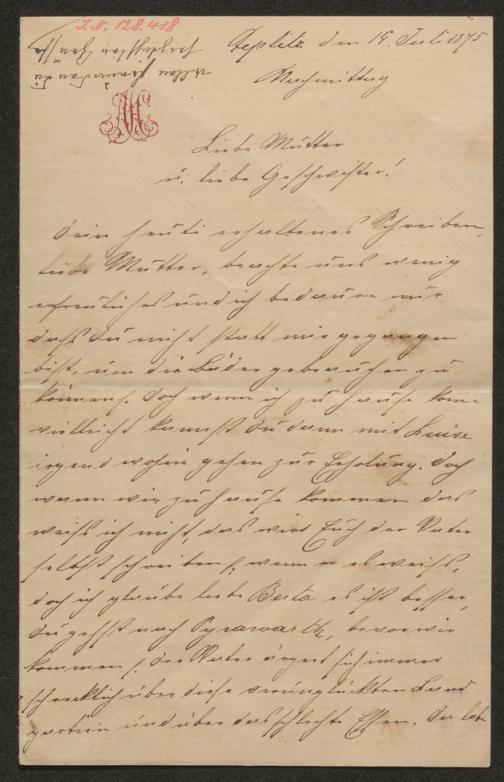 I.N. 128.418
Teplitz den 14. Juli 1875
Nachmittag
Liebe Mutter
u. liebe Geschwister!
Dein heute erhaltenes Schreiben,
liebe Mutter, brachte uns wenig
erfreuliches und ich bedaure nur
daß du nicht statt mir gegangen
bist, um die Bäder gebrauchen zu
können. Doch wenn ich zu Hause kome
vielleicht kannst du dann mit Luise
irgend wohin gehen zur Erholung. Doch
wann wir zu Hause kommen das
weiß ich nicht, das wird Euch der Vater
selbst schreiben, wenn er es weiß,
doch ich glaube liebe Berta es ist besser,
du gehst nach Pyrawarth, bevor wir
kommen, der Vater ärgert sich immer
schrecklich über diese verunglückten Land
partien und über das schlechte Essen. Da lobt